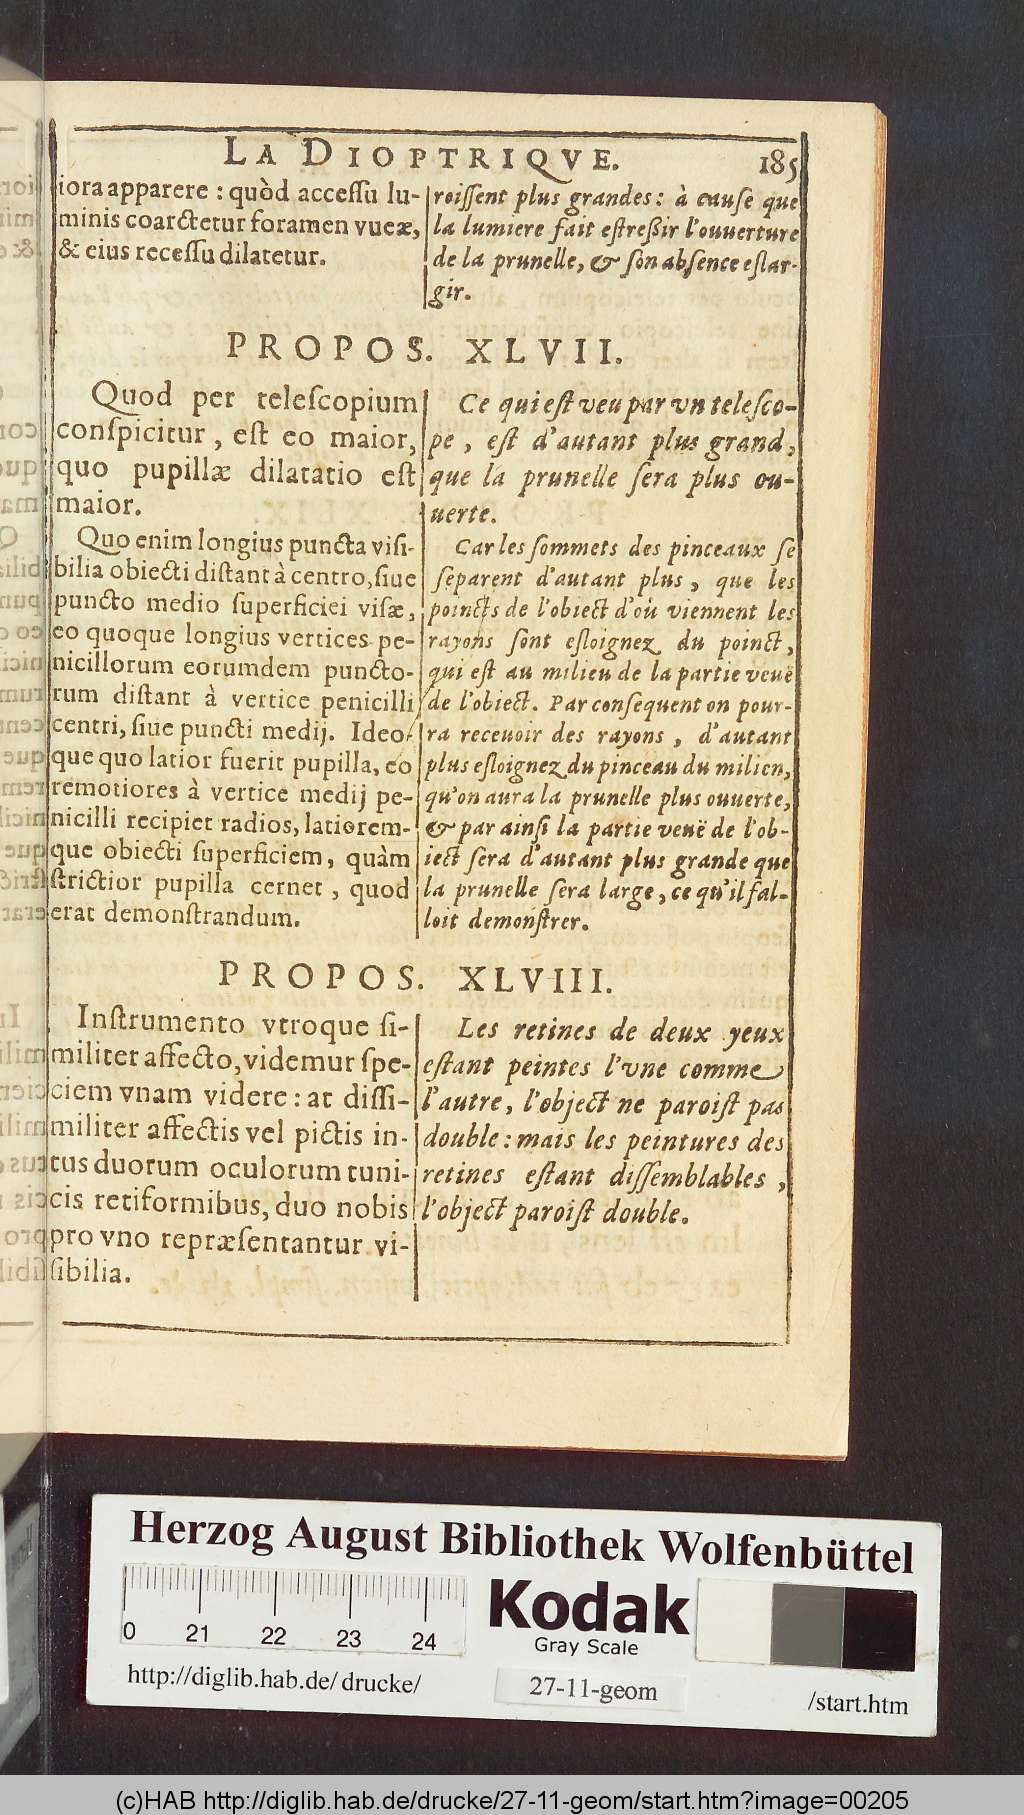 LA DIOPTRIQVE.
185
iora apparere : quòd accessu lu-
minis coarctetur foramen vueæ,
& eius recessu dilatetur.
roissent plus grandes : à cause que
la lumiere fait estreßir l'ouuerture
de la prunelle, & son absence eslar-
gir.
PROPOS. XLVII.
Quod per telescopium
conspicitur, est eo maior,
quo pupillæ dilatatio est
maior.
Quo enim longius puncta visi-
bilia obiecti distant à centro, siue
puncto medio superficiei visæ,
eo quoque longius vertices pe-
nicillorum eorumdem puncto-
rum distant à vertice penicilli
centri, siue puncti medij. Ideo-
que quo latior fuerit pupilla, eo
remotiores à vertice medij pe-
nicilli recipiet radios, latiorem-
que obiecti superficiem, quàm
strictior pupilla cernet, quod
erat demonstrandum.
Ce qui est veu par vn telesco-
pe, est d'autant plus grand,
que la prunelle sera plus ou-
uerte.
Car les sommets des pinceaux se
separent d'autant plus, que les
poincts de l'obiect d'où viennent les
rayons sont esloignez du poinct,
qui est au milieu de la partie veuë
de l'obiect. Par consequent on pour-
ra receuoir des rayons, d'autant
plus esloignez du pinceau du milieu,
qu'on aura la prunelle plus ouuerte,
& par ainsi la partie veuë de l'ob-
iect sera d'autant plus grande que
la prunelle sera large, ce qu'il fal-
loit demonstrer.
PROPOS. XLVIII.
Instrumento vtroque si-
militer affecto, videmur spe-
ciem vnam videre : at dissi-
militer affectis vel pictis in-
tus duorum oculorum tuni-
cis retiformibus, duo nobis
pro vno repræsentantur vi-
sibilia.
Les retines de deux yeux
estant peintes l'vne comme
l'autre, l'object ne paroist pas
double : mais les peintures des
retines estant dissemblables,
l'object paroist double.
Herzog August Bibliothek Wolfenbüttel
0 21 22 23 24
Kodak
Gray Scale
http://diglib.hab.de/ drucke/
27-11-geom
/start.htm
(c)HAB http://diglib.hab.de/drucke/27-11-geom/start.htm?image=00205